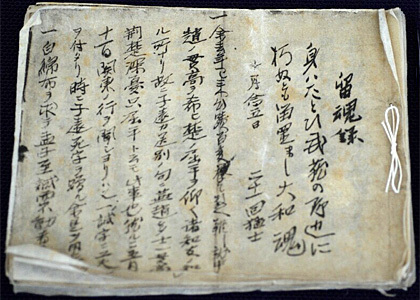 留魂録
身ハたとひ武蔵の野辺に
朽ぬとも留置まし大和魂
十月念五日 二十一回猛士
一 余去年已来心蹟百変挙て数へ難し就中
趙ノ貫高ヲ希ヒ楚ノ屈平ヲ仰ク諸知友ノ知
ル所ナリ故ニ子遠カ送別ノ句ニ燕趙多士一貫高
荊楚深憂只屈平ト云モ此事也然ルニ五月
十一日関東ノ行ヲ聞シヨリハ又一ノ誠字ニ工夫
ヲ付タリ時ニ子遠死字ヲ贈ル余是ヲ用
一白綿布ヲ求テ孟子至誠而不動者